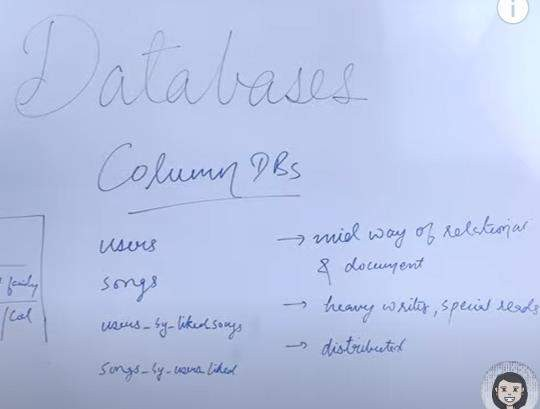 Databases
Column DBs
users
songs
users_by_liked songs
songs_by_users_liked
→ mid way of relational
& document
→ heavy writes, special reads
→ distributed
family
/Col
i